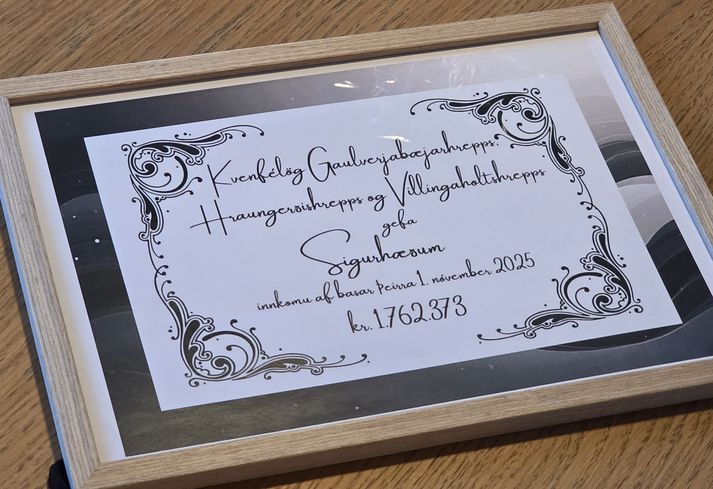 Kvenfélög Gaulverjabæjarhrepps,
Hraungerðishrepps og Villingaholtshrepps
gefa
Sigurhæðum
innkomu af basar þeirra 1. nóvember 2025
kr. 1.762.373